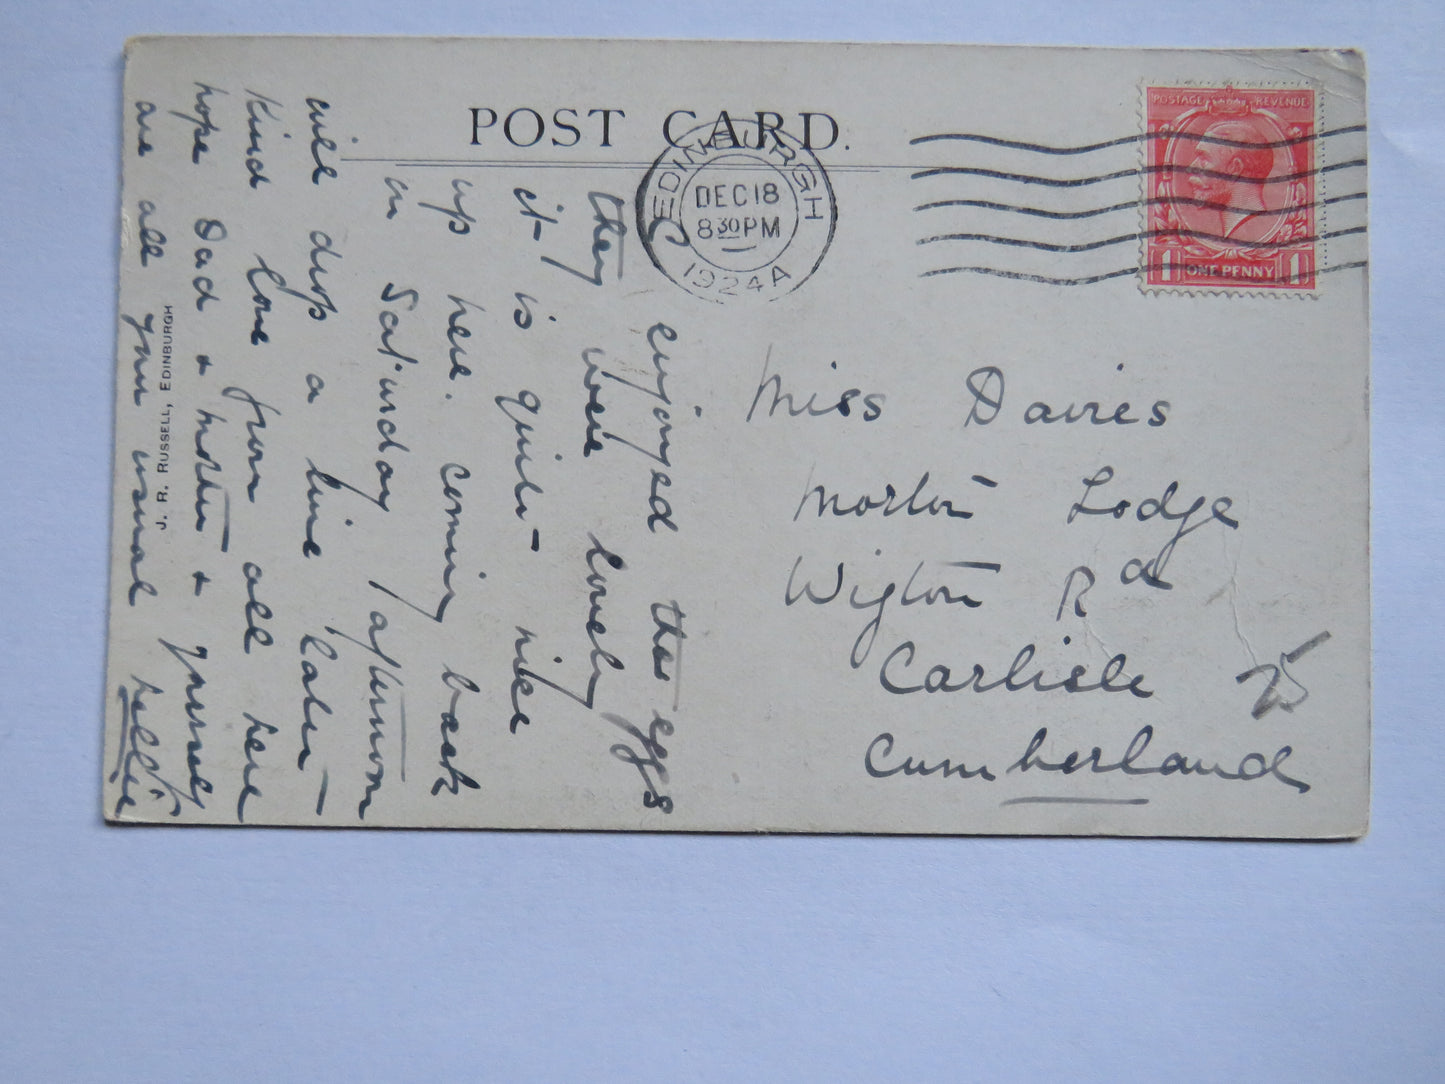 POST CARD.
EDINBURGH
DEC 18
8 30 PM
1924 A
POSTAGE REVENUE
1 ONE PENNY 1
Miss Davies
Morton Lodge
Wigton Rd
Carlisle
Cumberland
enjoyed the eggs
they were lovely
it is quite nice
up here. coming back
on Sat'urday afternoon
will drop a line later
Kind love from all here
hope Dad & Mother & yourself
are all your usual
J. R. RUSSELL, EDINBURGH